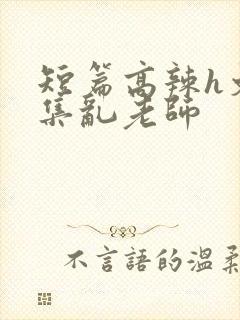 短篇高辣h文
集亂老師
不言語的溫柔